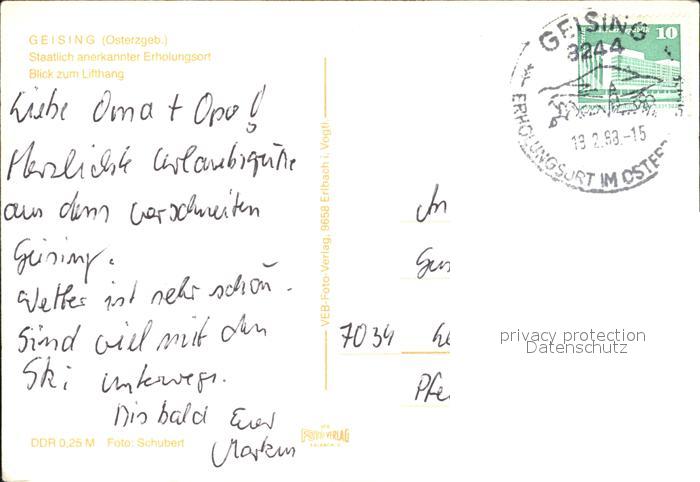 GEISING (Osterzgeb.)
Staatlich anerkannter Erholungsort
Blick zum Lifthang
Liebe Oma + Opa!
Herzlichste Urlaubsgrüße
aus dem verschneiten
Geising.
Wetter ist sehr schön.
Sind viel mit den
Ski unterwegs.
Bis bald Euer
Markus
DDR 0,25 M Foto: Schubert
VEB-Foto-Verlag, 9658 Erlbach i. Vogtl.
FOTO-VERLAG
GEISING
3244
10
-15
ERHOLUNGSORT IM OSTER
An
7034
Pfe
privacy protection
Datenschutz